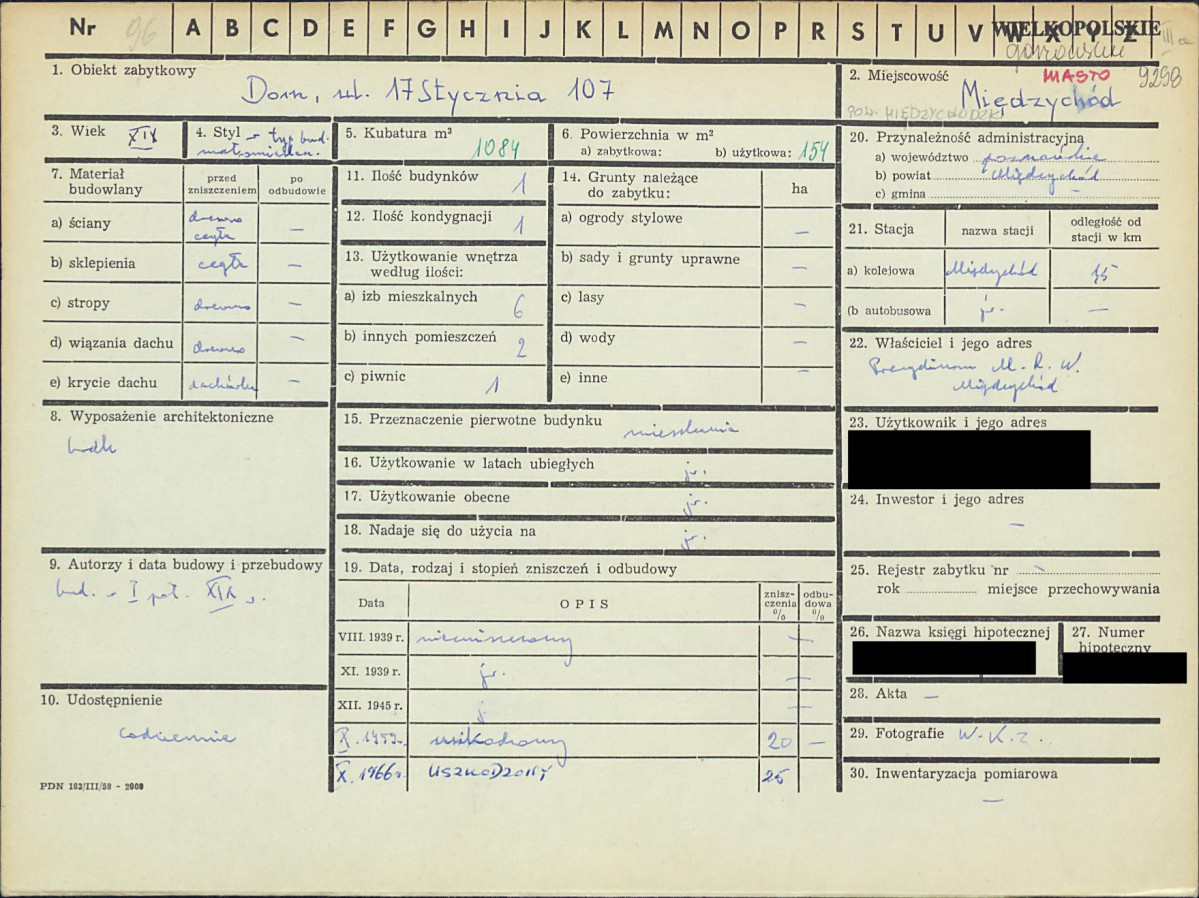 Nr 96 A B C D E F G H I J K L M N O P R S T U V W X Y Z
WIELKOPOLSKIE
gorzowskie
1. Obiekt zabytkowy
Dom, ul. 17 Stycznia 107
2. Miejscowość MIASTO 9298
POW. MIĘDZYCHODZKI
Międzychód
3. Wiek XIX
4. Styl - typ bud.
małomiasteczk.
5. Kubatura m³
1084
6. Powierzchnia w m²
a) zabytkowa: b) użytkowa: 154
7. Materiał budowlany
przed zniszczeniem
po odbudowie
a) ściany drewno cegła —
b) sklepienia cegła —
c) stropy drewno —
d) wiązania dachu drewno —
e) krycie dachu dachówka —
8. Wyposażenie architektoniczne
brak
9. Autorzy i data budowy i przebudowy
bud. - I poł. XIX w.
10. Udostępnienie
codziennie
PDN 183/III/58 - 2000
11. Ilość budynków 1
12. Ilość kondygnacji 1
13. Użytkowanie wnętrza
według ilości:
a) izb mieszkalnych 6
b) innych pomieszczeń 2
c) piwnic 1
14. Grunty należące
do zabytku:
ha
a) ogrody stylowe —
b) sady i grunty uprawne —
c) lasy —
d) wody —
e) inne —
15. Przeznaczenie pierwotne budynku mieszkanie
16. Użytkowanie w latach ubiegłych jw.
17. Użytkowanie obecne jw.
18. Nadaje się do użycia na jw.
19. Data, rodzaj i stopień zniszczeń i odbudowy
Data OPIS znisz-czenia % odbu-dowa %
VIII. 1939 r. niezniszczony —
XI. 1939 r. jw. —
XII. 1945 r. —
X. 1959r. uszkodzony 20 —
X. 1966r. USZKODZONY 25
20. Przynależność administracyjna
a) województwo poznańskie
b) powiat Międzychód
c) gmina —
21. Stacja
nazwa stacji
odległość od stacji w km
a) kolejowa Międzychód 1,5
(b autobusowa jw. —
22. Właściciel i jego adres
Prezydium M. R. N.
Międzychód
23. Użytkownik i jego adres
24. Inwestor i jego adres
—
25. Rejestr zabytku nr —
rok miejsce przechowywania
26. Nazwa księgi hipotecznej
27. Numer
hipoteczny
28. Akta —
29. Fotografie W.K.Z.
30. Inwentaryzacja pomiarowa
—